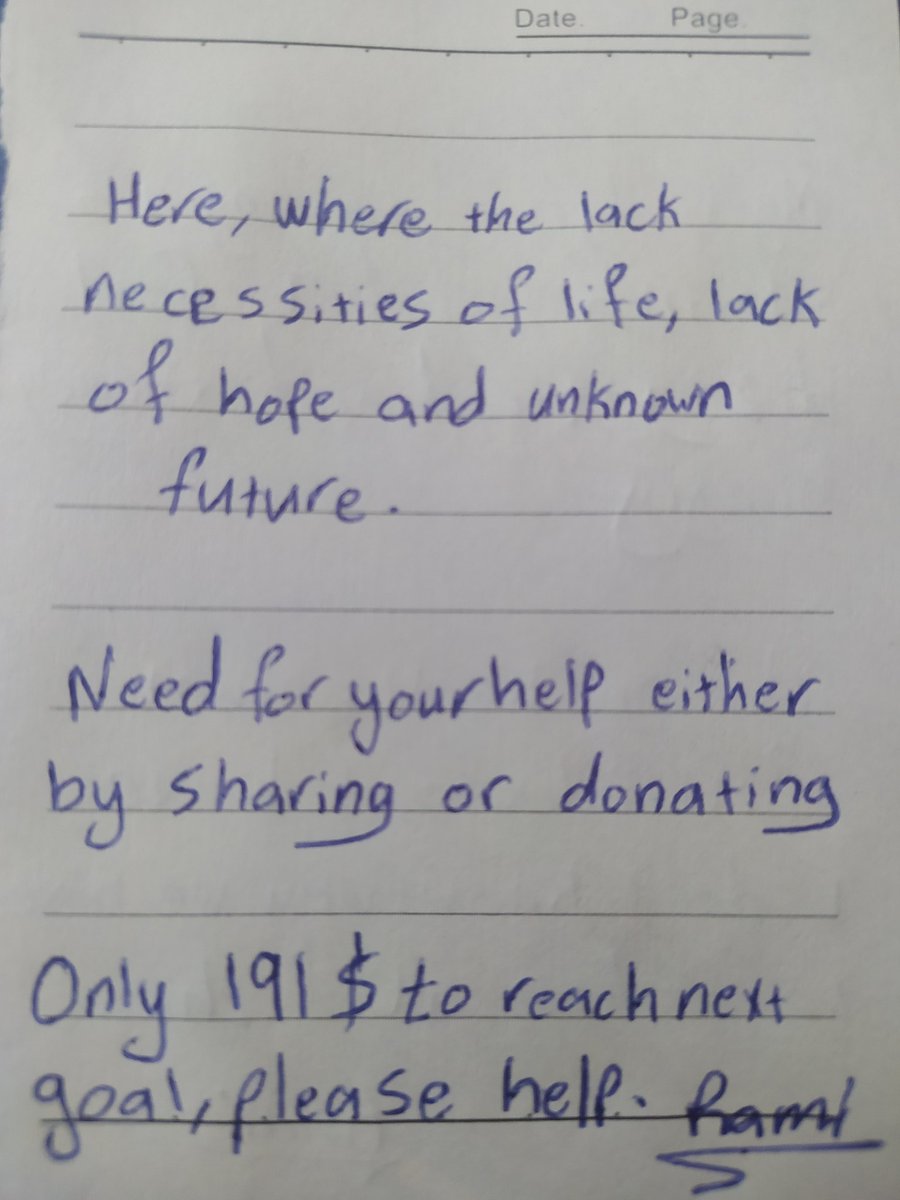 Date. Page
Here, where the lack
necessities of life, lack
of hope and unknown
future.
Need for your help either
by sharing or donating
Only 191$ to reach next
goal, please help. Rami